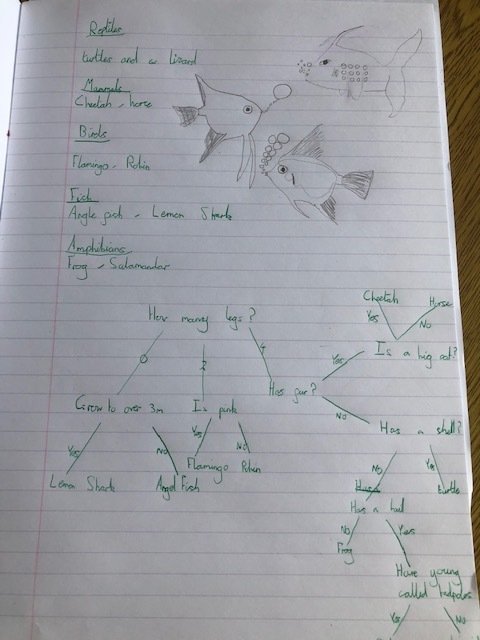 Reptiles
turtles and a lizard
Mammals
Cheetah, horse
Birds
Flamingo, Robin
Fish
Angle fish, Lemon Shark
Amphibians
Frog, Salamandar
Cheetah
Horse
Yes
No
How many legs?
Is a big cat?
0
2
4
Yes
Has fur?
No
Grow to over 3m
Is pink
Has a shell?
Yes
No
Yes
No
No
Yes
Flamingo
Robin
Lemon Shark
Angel Fish
turtle
Has a tail
No
Yes
Frog
Have young
called tadpoles
Yes
No